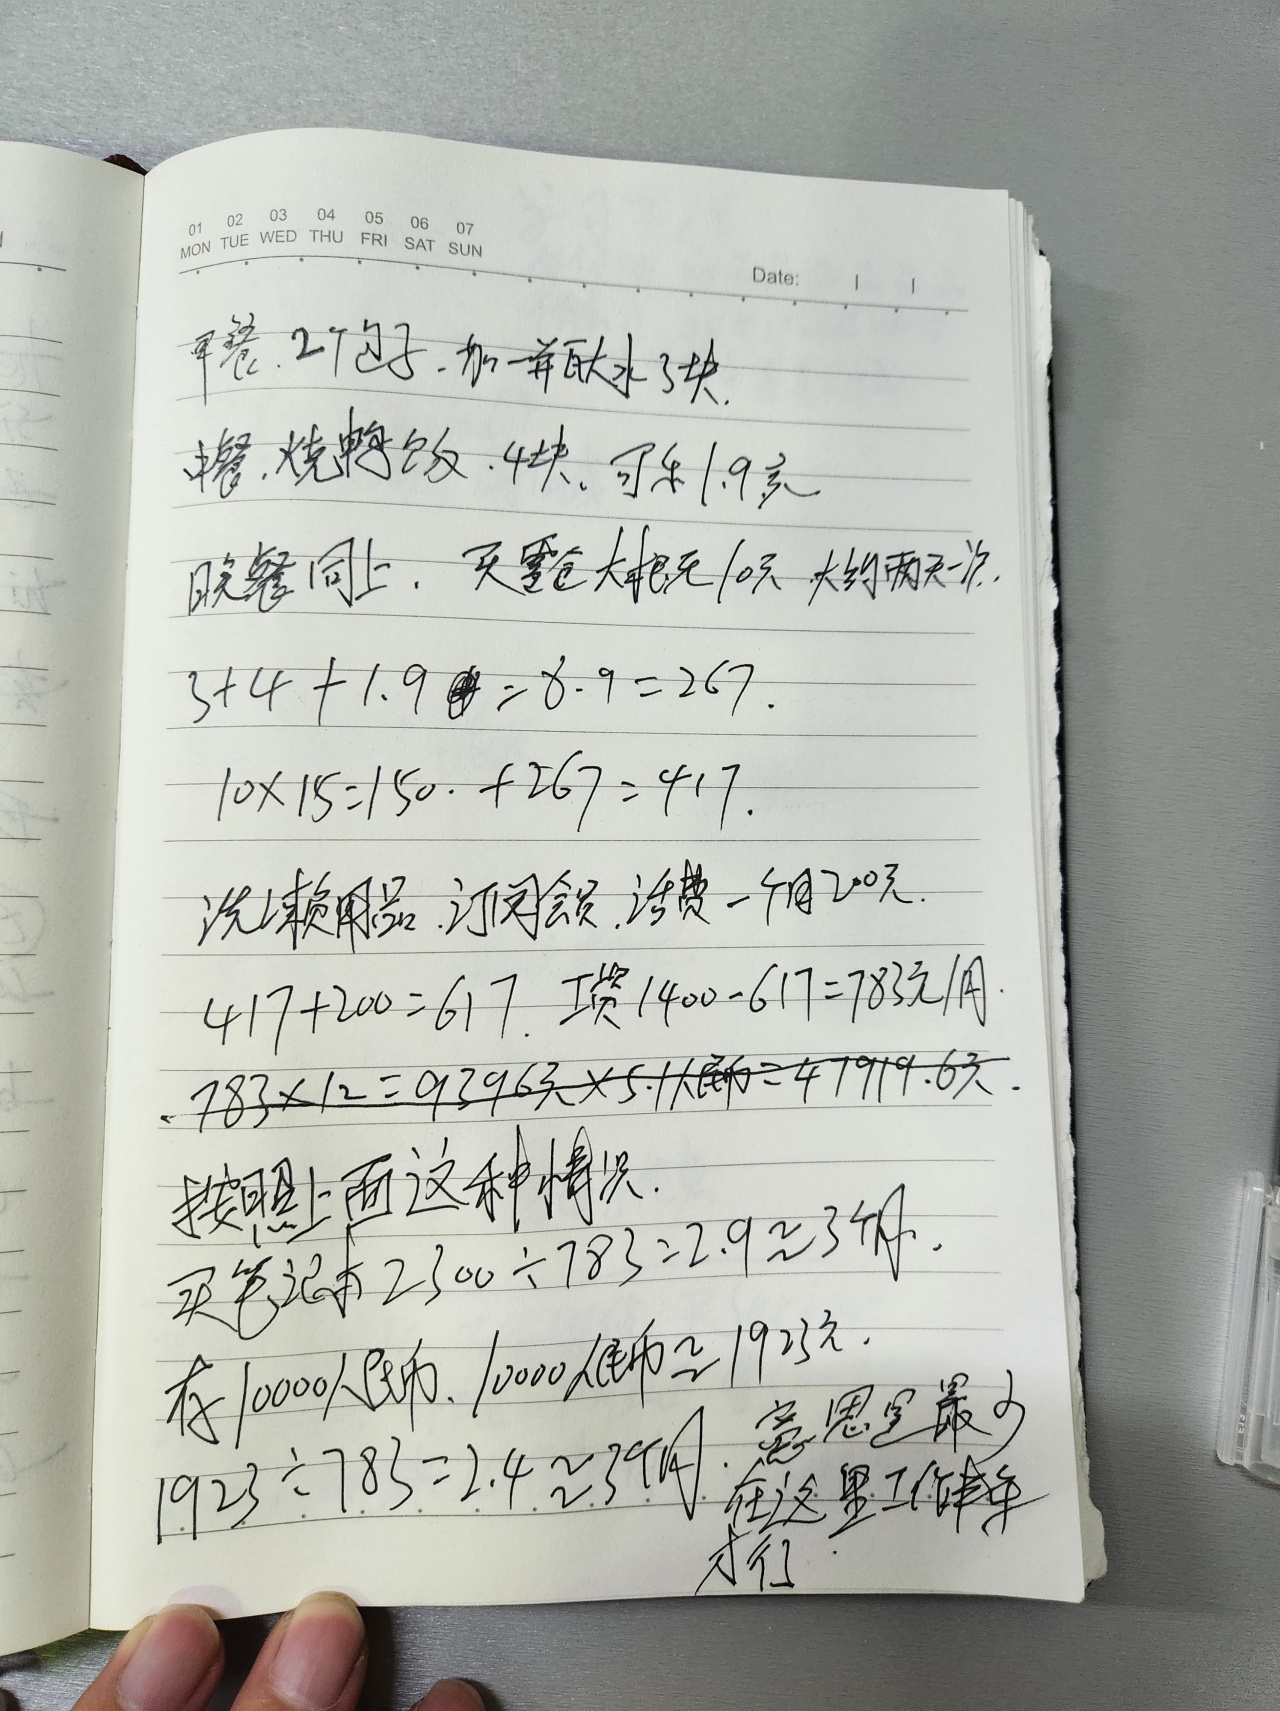 01 02 03 04 05 06 07
MON TUE WED THU FRI SAT SUN
Date:
早餐.2个包子.加一并瓦大水3块.
中餐.烧鸭饭.4块.可乐1.9元
晚餐同上. 买零食大概花10元 大约两天一次.
3+4+1.9=8.9=267.
10×15=150.+267=417.
洗漱用品.订阅会员.话费一个月200元.
417+200=617. 工资1400-617=783元/月.
783×12=9396元×5.1人民币=47919.6元.
按照上面这种情况.
买笔记本2300÷783=2.9≈3个月.
存10000人民币.10000人民币≈1923元.
1923÷783=2.4≈3个月.
意思是最少
在这里工作半年
才行.